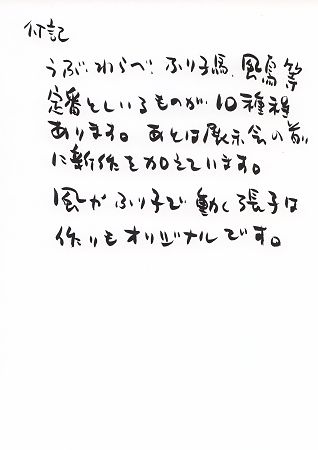 付記
うぶわらべ、ふり子馬、風鳥等
定番といいるものが10種程
あります。あとは展示会の前
に新作を加えています。
風かふり子で動く張子は
作りもオリジナルです。